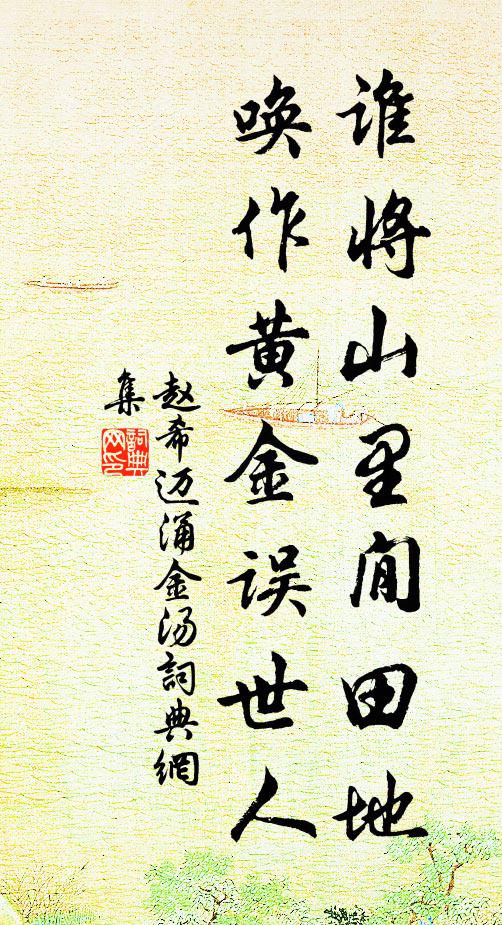 谁将山里闲田地
唤作黄金误世人
赵希迈涌金汤詞典網
集
詞典
网印